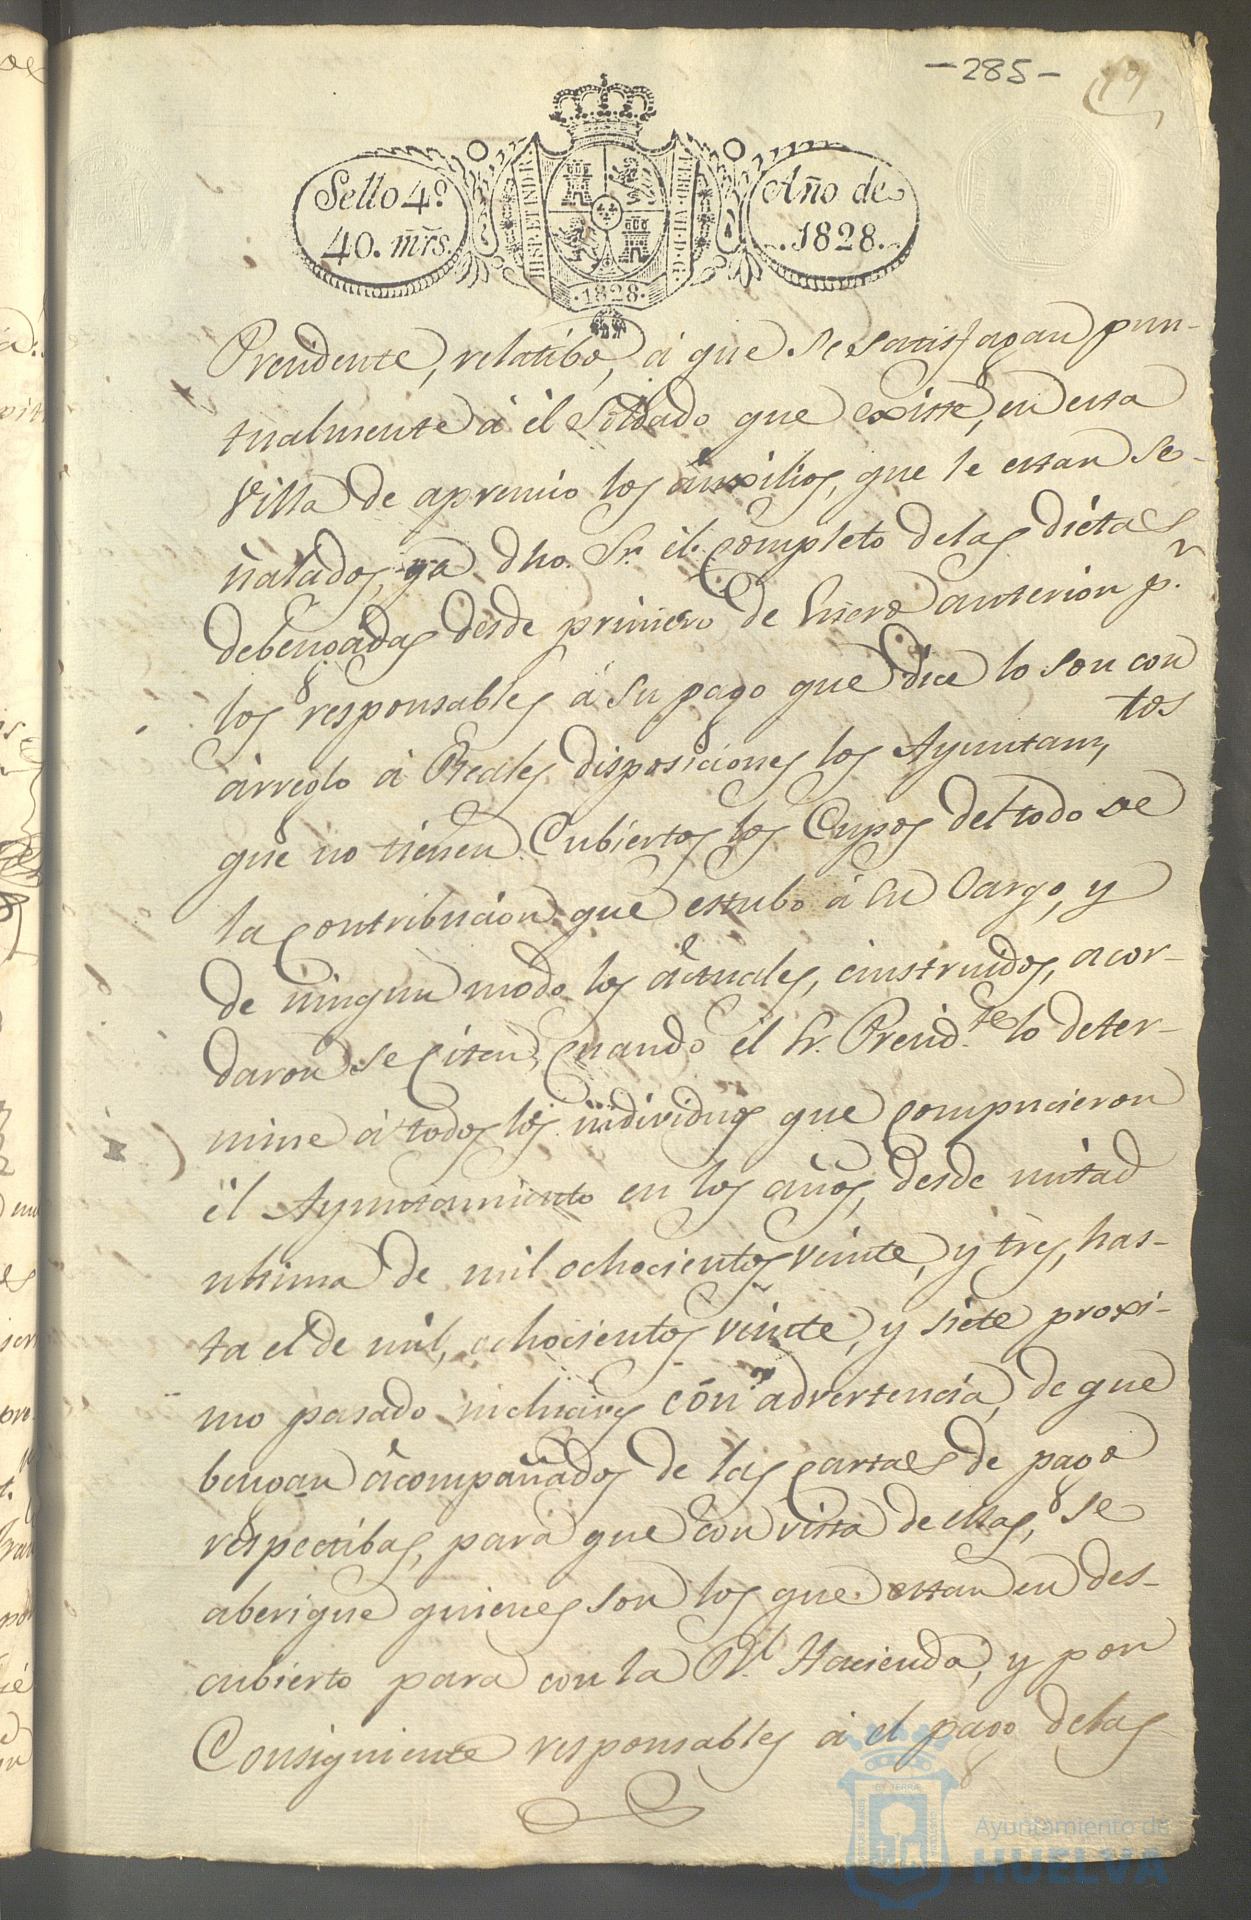 -285-
Sello 4º
40. mr̃s.
HISP. ET IND. R.
FERD. VII. D. G.
Año de
1828.
·1828·
Presidente, relatibo, á que se satisfagan pun-
tualmente á él Soldado que existe, en esta
Villa de apremio los auxilios, que le estan se-
ñalados, ya dho. Sr. él completo de las dietas
debengadas desde primero de Enero anterior pr.
los responsables á su pago que dice lo son con
arreglo á Reales disposiciones los Ayuntamtos
que no tienen Cubiertos los Cupos del todo de
la contribucion que estubo á su Cargo, y
de ningun modo los actuales, instruidos, acor-
daron se Citen, cuando él Sr. Presidte. lo deter-
mine á todos los individuos que compucieron
él Ayuntamiento en los años, desde mitad
ultima de mil ochocientos veinte, y tres, has-
ta el de mil, ochocientos veinte, y siete proxi-
mo pasado inclucive con advertencia, de que
bengan acompañados de las cartas de pago
respectibas, para que con vista de ellas, se
aberigue quienes son los que estan en des-
cubierto para con la Rl. Hacienda, y por
Consiguiente responsables á el pago de las
EX TERRÆ
Ayuntamiento de
HUELVA